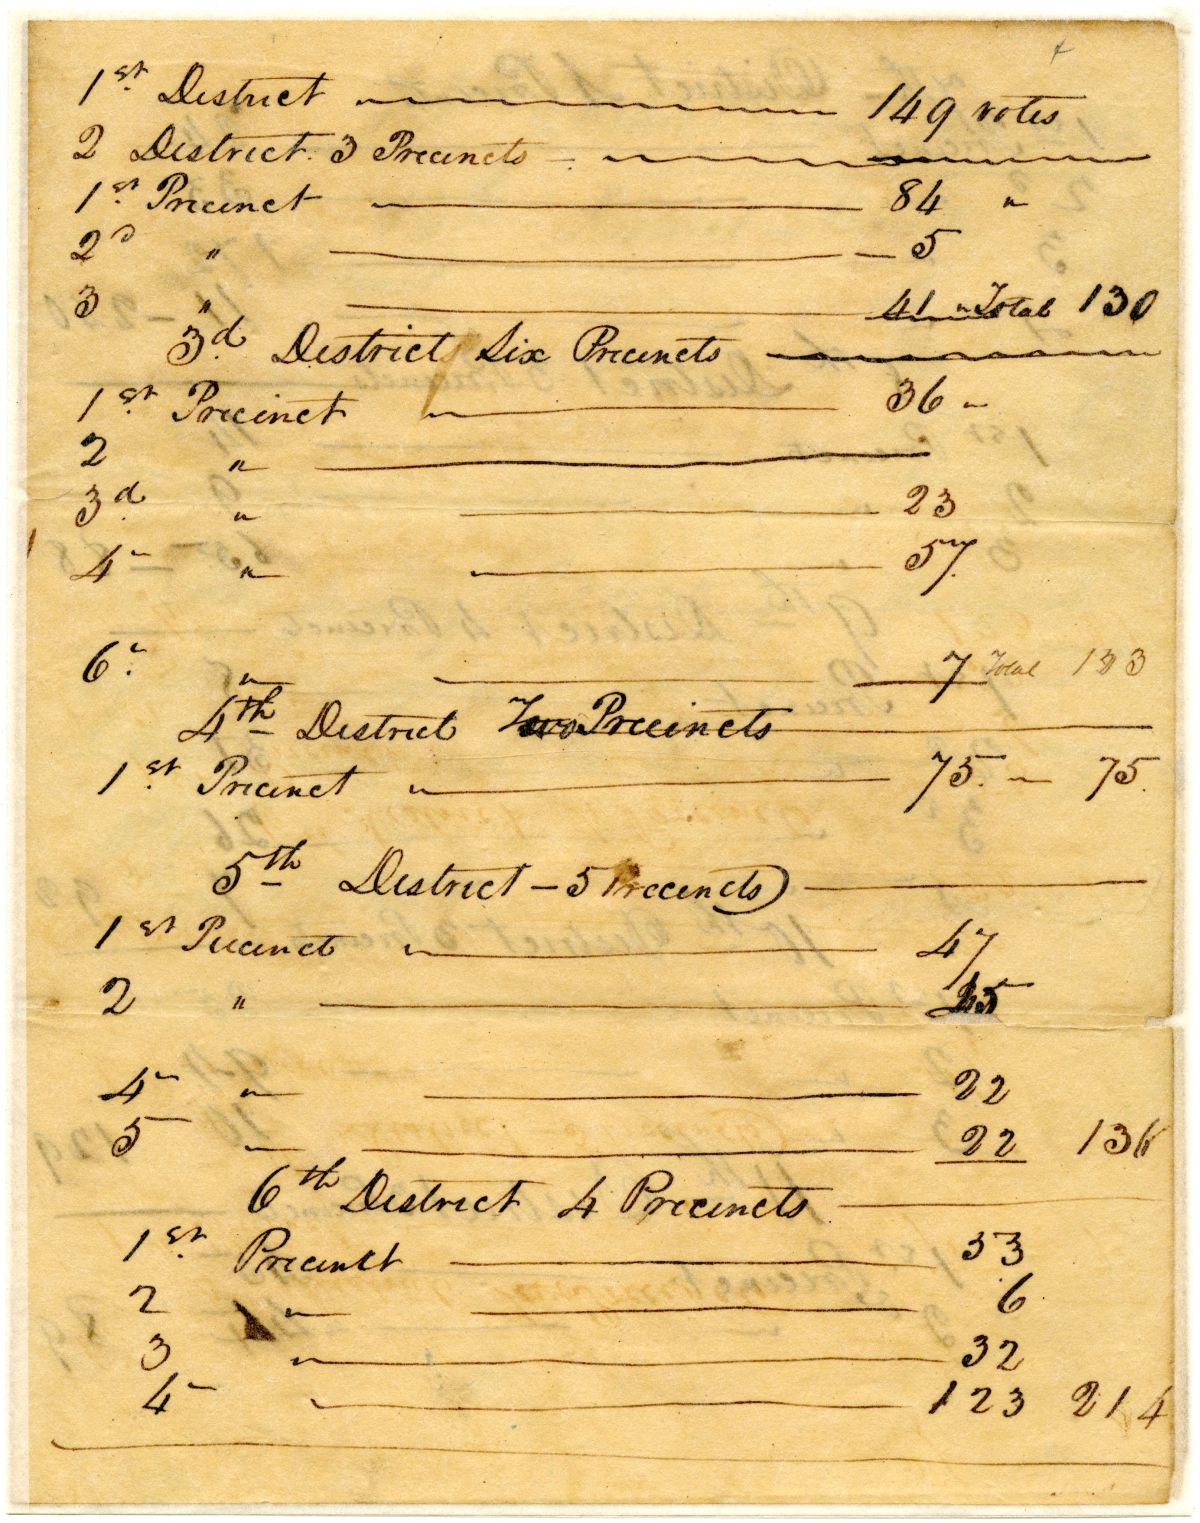 1st District 149 votes
2 District. 3 Precincts
1st Precinct 84 "
2d " 5
3 " 41 " Total 130
3d District Six Precincts
1st Precinct 36 "
2 "
3d " 23
4 " 57.
6 " 7 Total 123
4th District Two Precincts
1st Precinct 75. " 75.
5th District - 5 Precincts
1st Precinct 47
2 " 45
4 " 22
5 " 22 136
6th District 4 Precincts
1st Precinct 53
2 " 6
3 " 32
4 " 123 214